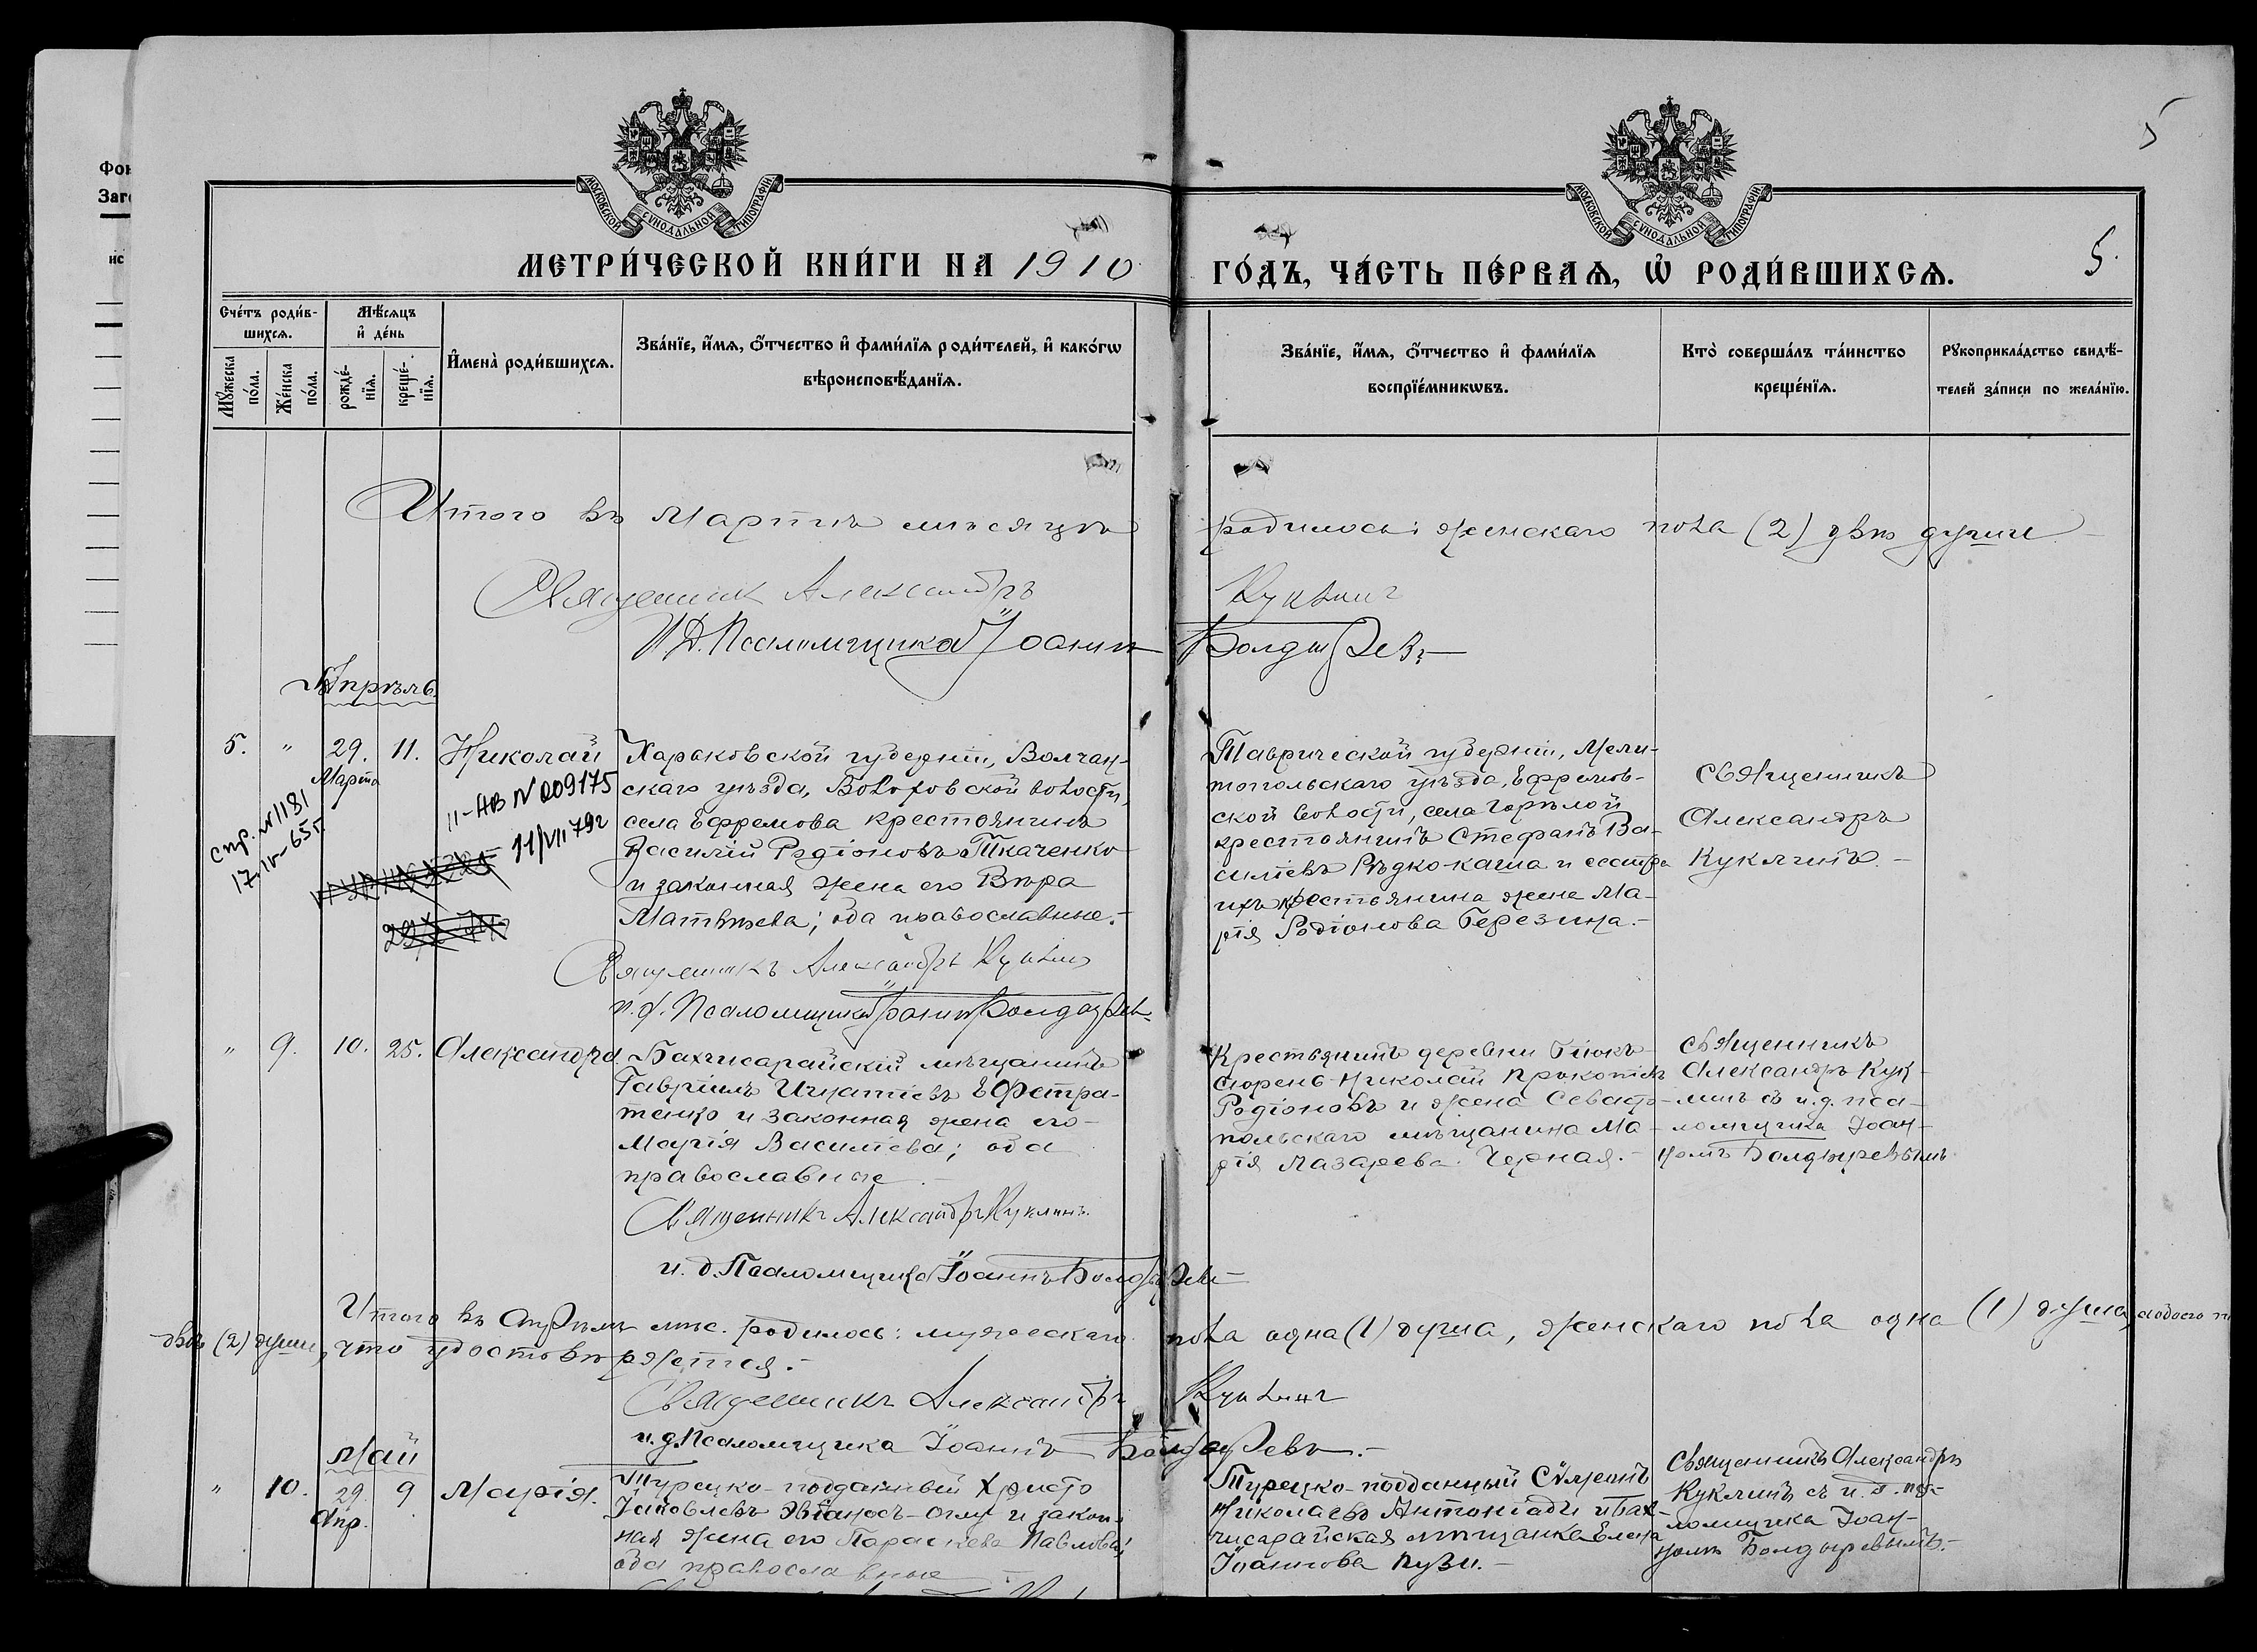 Фон
Заго
ис
МОСКОВСКОЙ СѴНОДАЛЬНОЙ ТИПОГРАФІИ.
МОСКОВСКОЙ СѴНОДАЛЬНОЙ ТИПОГРАФІИ.
5
5.
МЕТРИ́ЧЕСКОЙ КНИ́ГИ НА 1910
ГО́ДЪ, ЧА́СТЬ ПЕ́РВАѦ, Ѡ҆ РОДИ́ВШИХСѦ.
Сче́тъ роди́в-
шихсѧ.
Мꙋ́жеска по́ла.
Же́нска по́ла.
Мѣ́сѧцъ
и҆ де́нь
рожде́-нїѧ.
креще́-нїѧ.
И҆мена̀ роди́вшихсѧ.
Зва́нїе, и҆́мѧ, ѻ҆́тчество и҆ фами́лїѧ роди́телей, и҆ како́гѡ
вѣроисповѣ́данїѧ.
Зва́нїе, и҆́мѧ, ѻ҆́тчество и҆ фами́лїѧ
воспрїе́мникѡвъ.
Кто̀ соверша́лъ та́инство
креще́нїѧ.
Рꙋкоприкла́дство свидѣ́-
телей за́писи по жела́нїю.
Итого въ Мартѣ мѣсяцѣ родилось: женскаго пола (2) двѣ души
Священник Александръ Куклинъ
И. Д. Псаломщика Іоаннъ Болдыревъ
Апрѣль.
5. " 29. 11. Николай
Марта
спр. №1181
17/IV-65г.
II-АВ №009175
11/VII 79г
Харьковской губерніи, Волчан-
скаго уѣзда, Волоховской волости,
села Ефремова крестьянинъ
Василій Родіоновъ Ткаченко
и законная жена его Вѣра
Матвѣева; оба православные.-
Священникъ Александръ Куклинъ
и. д. Псаломщика Іоаннъ Болдыревъ
Таврической губерніи, Мели-
топольскаго уѣзда, Ефремов-
ской волости, села Горѣлой
крестьянинъ Стефанъ Ва-
силіевъ Рѣдко-каша и
ихъ крестьянина жена Ма-
рія Родіонова Березина.-
Священникъ
Александръ
Куклинъ.-
" 9. 10. 25. Александра
Бахчисарайскій мѣщанинъ
Гавріилъ Игнатіевъ Ефстра-
тенко и законная жена его
Марія Василіева; оба
православные.-
Священникъ Александръ Куклинъ.
и. д. Псаломщика Іоаннъ Болдыревъ
Крестьянинъ деревни Біюкъ-
Сюрень Николай Прокопіевъ
Родіоновъ и жена Севасто-
польскаго мѣщанина Ма-
рія Лазарева Черная.-
Священникъ
Александръ Кук-
линъ съ и. д. пса-
ломщика Іоан-
номъ Болдыревымъ
Итого въ Апрѣлѣ мѣс. родилось: мужескаго пола одна (1) душа, женскаго пола одна (1) душа, обоего п
двѣ (2) души, что удостовѣряется.-
Священникъ Александръ Куклинъ
и. д. Псаломщика Іоаннъ Болдыревъ.-
Май
" 10. 29 9 Марія.
Апр.
Турецко-подданный Христо
Іаковлевъ огло и закон-
ная жена его Параскева Павлова;
оба православные
Турецко-подданный Сѵмеонъ
Николаевъ Антоніади и Бах-
чисарайская мѣщанка Елена
Іоаннова Пузи.-
Священникъ Александръ
Куклинъ съ и. д. пса-
ломщика Іоан-
номъ Болдыревымъ.-